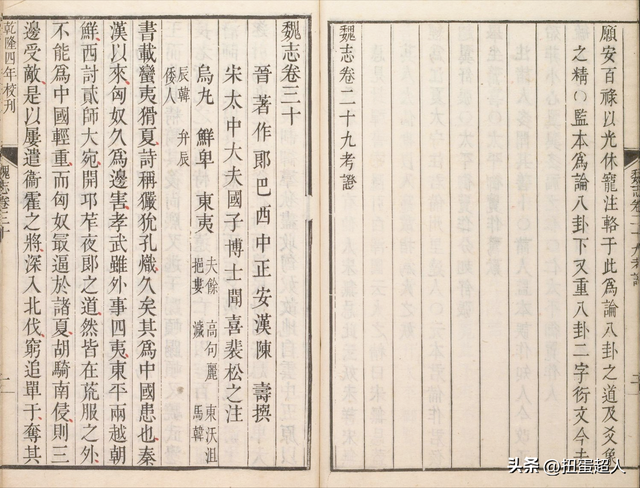 願安百祿以光休寵注輅于此爲論八卦之道及爻象
之精〇監本爲論八卦下又重八卦二字衍文今去
魏志卷二十九考證
魏志卷二十九考證
魏志卷三十
晉著作郎巴西中正安漢陳 壽撰
宋太中大夫國子博士聞喜裴松之注
烏丸 鮮卑 東夷 夫餘 高句麗 東沃沮
挹婁 濊 馬韓
辰韓 弁辰
倭人
書載蠻夷猾夏詩稱玁狁孔熾久矣其爲中國患也秦
漢以來匈奴久爲邊害孝武雖外事四夷東平兩越朝
鮮西討貳師大宛開邛苲夜郎之道然皆在荒服之外
不能爲中國輕重而匈奴最逼於諸夏胡騎南侵則三
邊受敵是以屢遣衞霍之將深入北伐窮追單于奪其
乾隆四年校刊
魏志卷三十
头条 @扭蛋超人